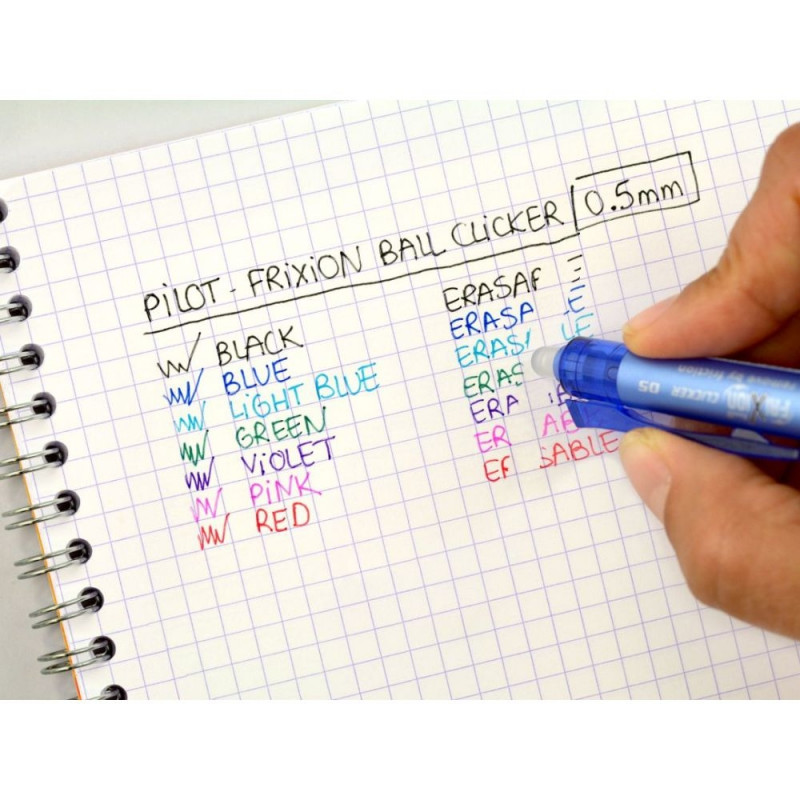 PiLOT - FRiXiON BALL CLiCKER 0.5mm
BLACK
BLUE
LiGHT BLUE
GREEN
ViOLET
PiNK
RED
ERASA E
ERASA LE
ERAS LE
ERAS
ERA
ER AB
E SABLE
FRiXiON CLICKER 05
remove by friction